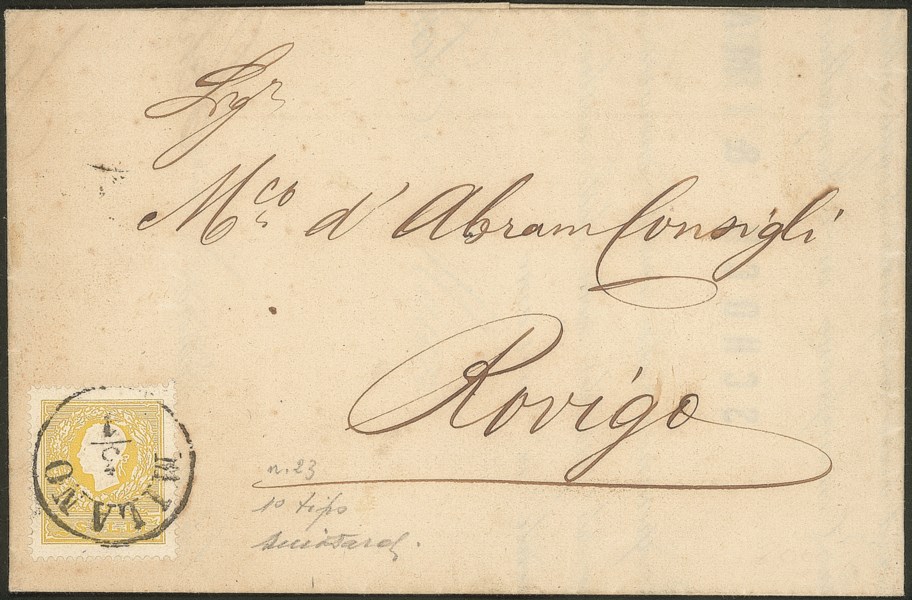 Sig.r
M.co d' Abram Consigli
Rovigo
MILANO
n. 23
1º tipo